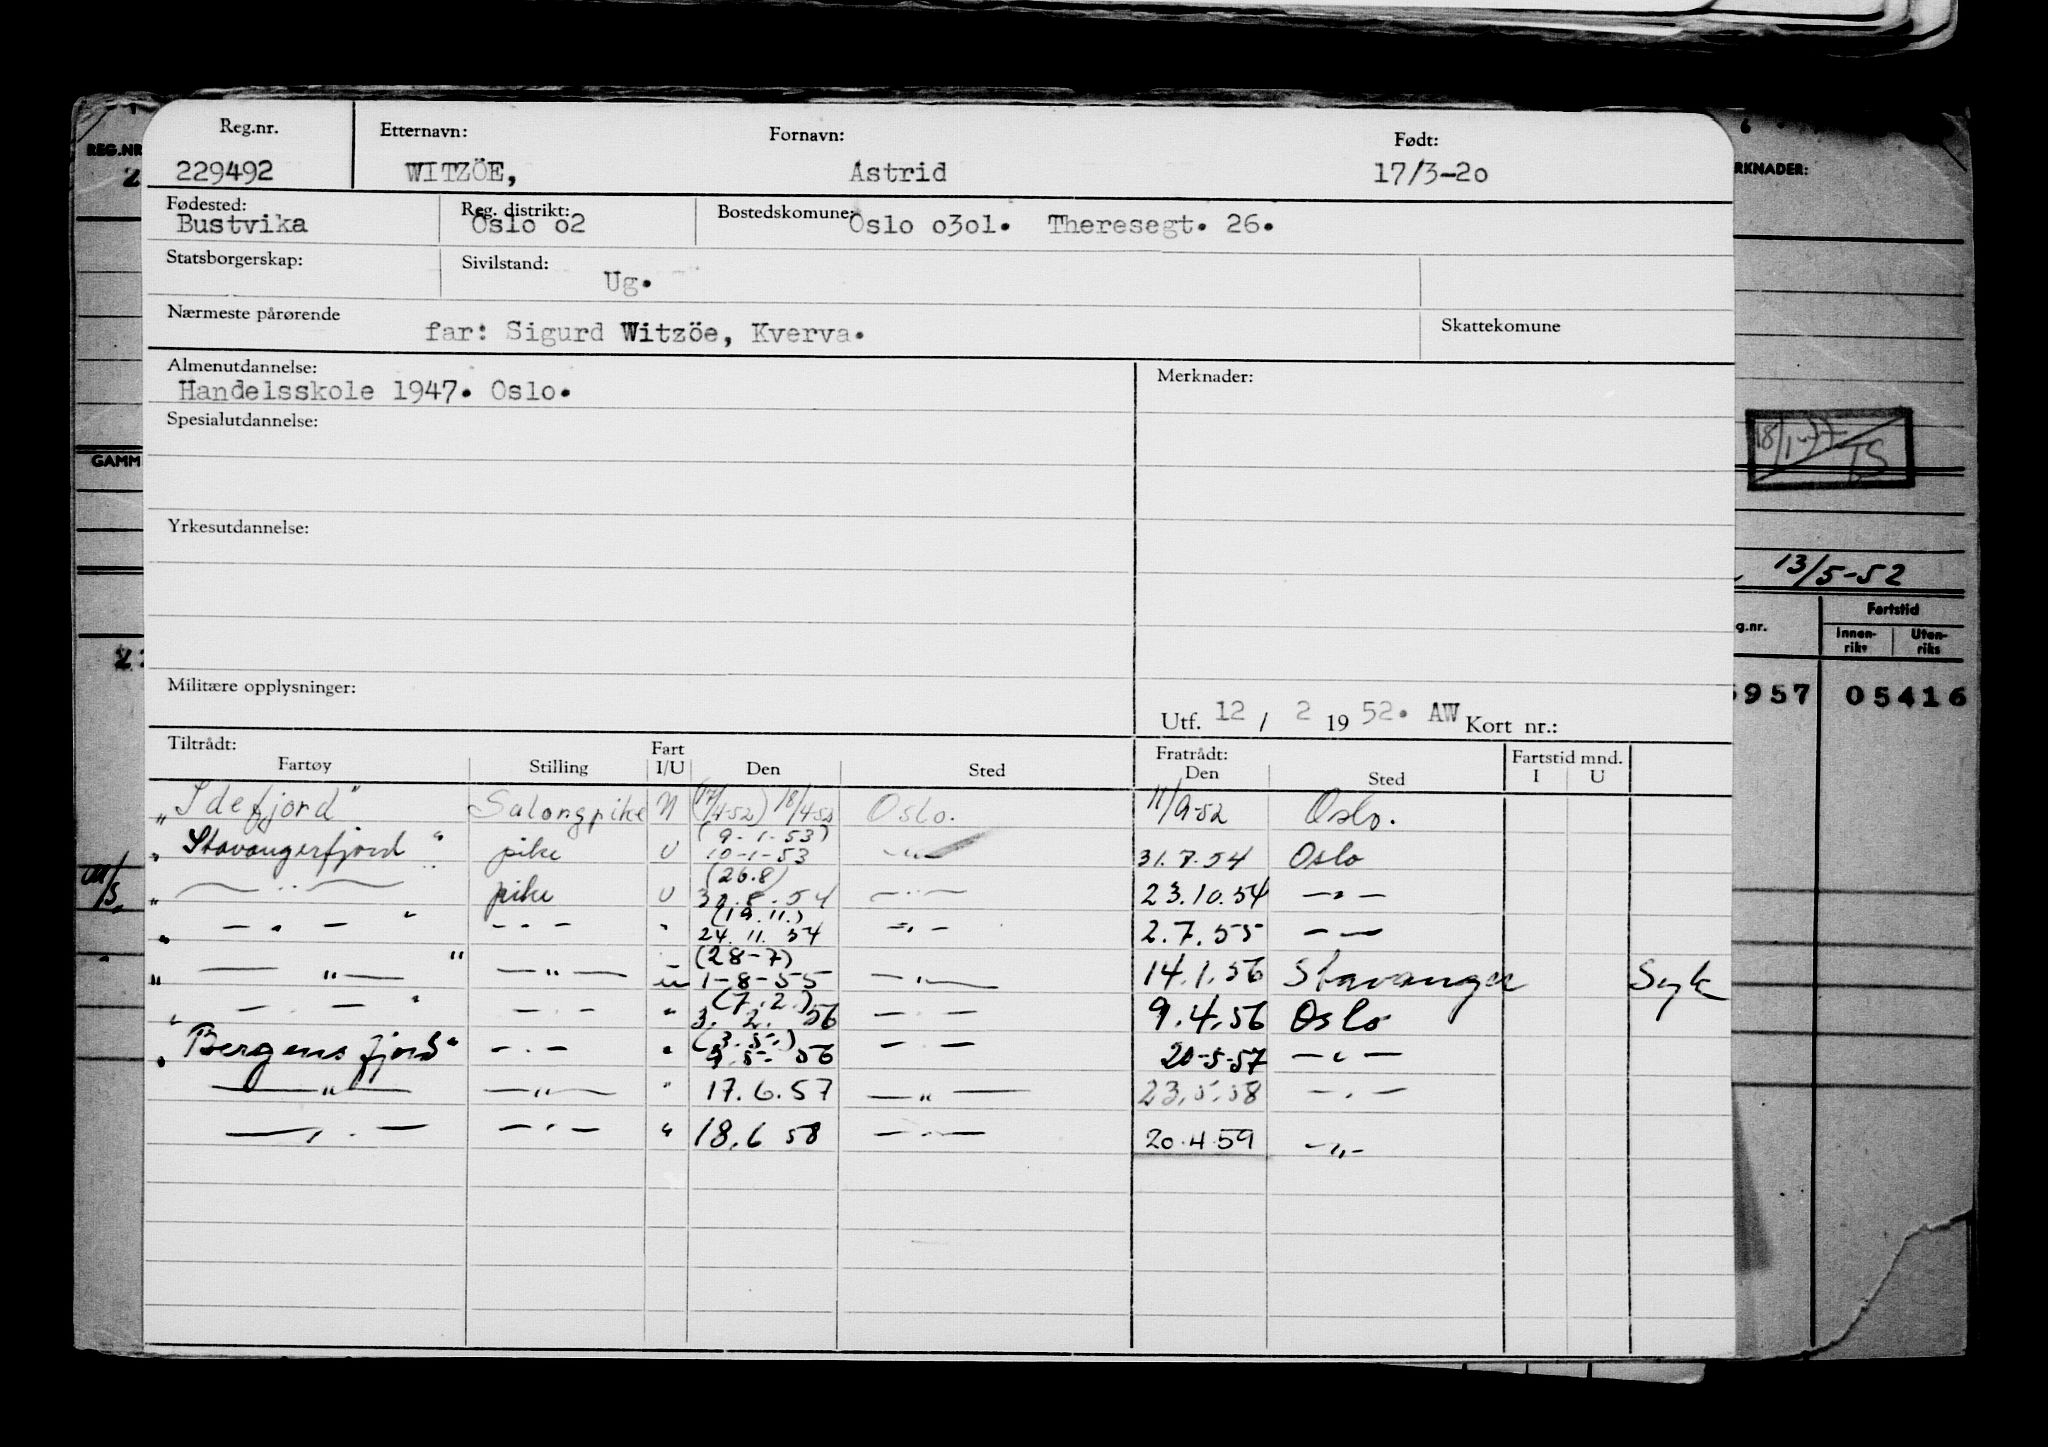 Reg.nr. Etternavn: Fornavn: Født:
229492 WITZÖE, Astrid 17/3-20
Fødested: Reg. distrikt: Bostedskomune:
Bustvika Oslo o2 Oslo o3o1. Theresegt. 26.
Statsborgerskap: Sivilstand:
Ug.
Nærmeste pårørende Skattekomune
far: Sigurd Witzöe, Kverva.
Almenutdannelse: Merknader:
Handelsskole 1947. Oslo.
Spesialutdannelse:
Yrkesutdannelse:
Militære opplysninger:
Utf. 12 / 2 19 52. AW Kort nr.:
Tiltrådt: Fratrådt: Fartstid mnd.
Fartøy Stilling Fart I/U Den Sted Den Sted I U
"Idefjord" Salongpike N (17/4-52) 18/4-52 Oslo. 11/9-52 Oslo.
(9-1-53)
"Stavangerfjord" pike U 10-1-53 — " — 31.7.54 Oslo
(26.8)
" — " — pike U 30.8.54 — " — 23.10.54 — " —
(19.11.)
" — " — " — " — " 24.11.54 — " — 2.7.55 — " —
(28-7)
" — " — " — " — u 1-8-55 — " — 14.1.56 Stavanger Syk
(7.2.)
" — " — " — " — " 3.2.56 — " — 9.4.56 Oslo
(3.5.)
"Bergensfjord" — " — " 9.5.56 — " — 20-5-57 — " —
— " — — " — " 17.6.57 — " — 23.5.58 — " —
— " — — " — " 18.6 58 — " — 20.4.59 — " —
REG.NR
2
GAMM
M/S.
RKNADER:
18/1-77 TS
13/5-52
g.nr. Fartstid
Innen-riks Uten-riks
957 05416